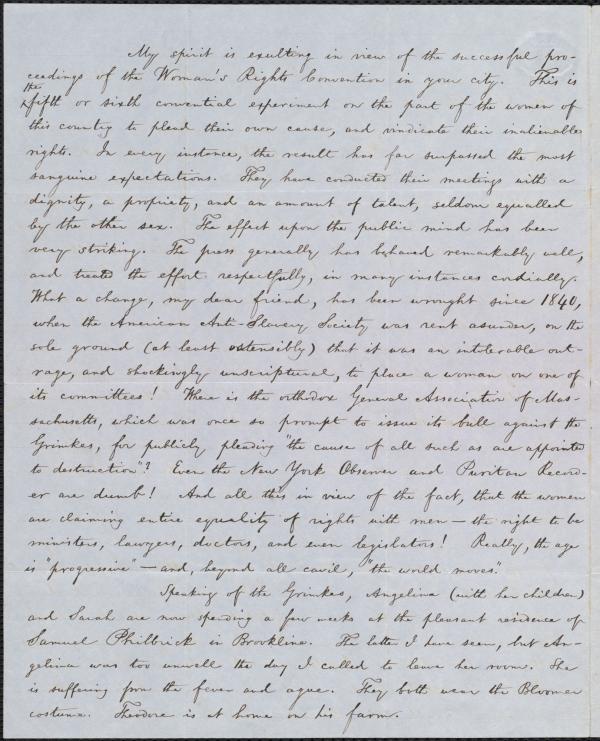 My spirit is exulting in view of the successful pro-
ceedings of the Woman's Rights Convention in your city. This is
the
x fifth or sixth convential experiment on the part of the women of
this country to plead their own cause, and vindicate their inalienable
rights. In every instance, the result has far surpassed the most
sanguine expectations. They have conducted their meetings with a
dignity, a propriety, and an amount of talent, seldom equalled
by the other sex. The effect upon the public mind has been
very striking. The press generally has behaved remarkably well,
and treated the effort respectfully, in many instances cordially.
What a change, my dear friend, has been wrought since 1840,
when the American Anti-Slavery Society was rent asunder, on the
sole ground (at least ostensibly) that it was an intolerable out-
rage, and shockingly unscriptural, to place a woman on one of
its committees! Where is the orthodox General Association of Mas-
sachusetts, which was once so prompt to issue its bull against the
Grimkes, for publicly pleading "the cause of all such as are appointed
to destruction"? Even the New York Observer and Puritan Record-
er are dumb! And all this in view of the fact, that the women
are claiming entire equality of rights with men — the right to be
ministers, lawyers, doctors, and even legislators! Really, the age
is "progressive" — and, beyond all cavil, "the world moves."
Speaking of the Grimkes, Angelina (with her children)
and Sarah are now spending a few weeks at the pleasant residence of
Samuel Philbrick in Brookline. The latter I have seen, but An-
gelina was too unwell the day I called to leave her room. She
is suffering from the fever and ague. They both wear the Bloomer
costume. Theodore is at home on his farm.